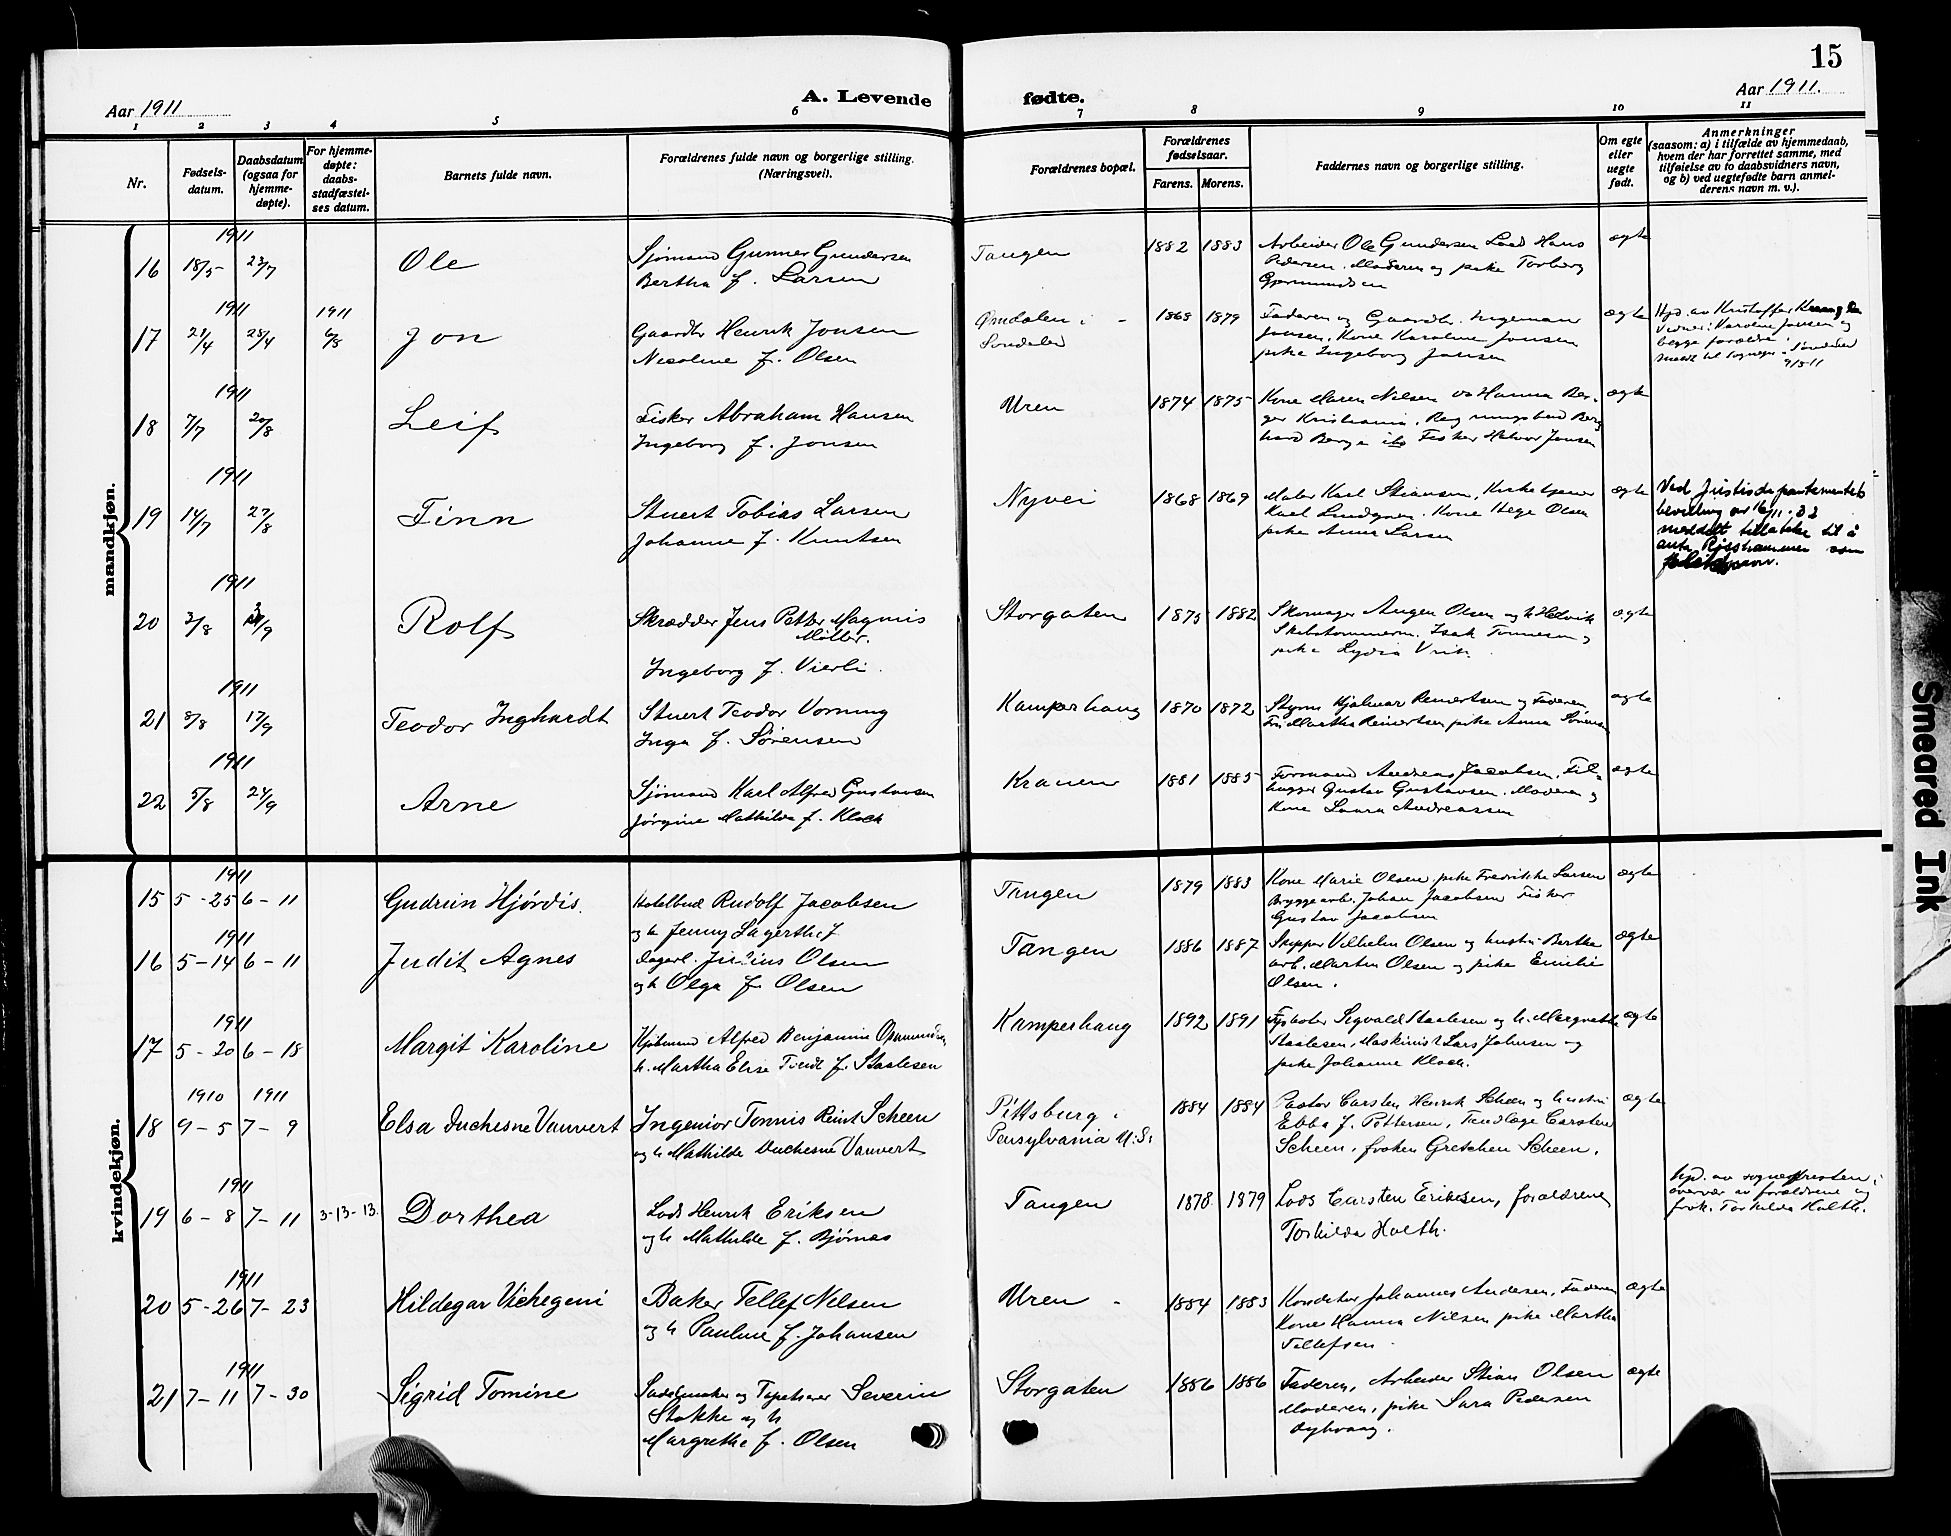 15
Aar 1911
A. Levende
fødte.
Aar 1911.
1 2 3 4 5 6 7 8 9 10 11
Nr.
Fødsels-
datum.
Daabsdatum
(ogsaa for
hjemme-
døpte).
For hjemme-
døpte:
daabs-
stadfæstel-
ses datum.
Barnets fulde navn.
Forældrenes fulde navn og borgerlige stilling.
(Næringsvei).
Forældrenes bopæl.
Forældrenes
fødselsaar.
Farens. Morens.
Faddernes navn og borgerlige stilling.
Om egte
eller
uegte
født.
Anmerkninger
(saasom: a) i tilfælde av hjemmedaab,
hvem der har forrettet samme, med
tilføielse av to daabsvidners navn,
og b) ved uegtefødte barn anmel-
derens navn m. v.).
mandkjøn.
1911
16 18/5 23/7 Ole
Sjømand Gunner Gundersen
Bertha f. Larsen
Tangen 1882 1883
Arbeider Ole Gundersen Lods Hans
Pedersen. Moderen og pike Torborg
ægte
1911 1911
17 21/4 25/4 6/8 Jon
Gaardbr Henrik Jonsen
Nicoline f. Olsen
1868 1879
Faderen og Gaardbr. Ingeman
Jonsen, Kone Karoline Jonsen
pike Ingeborg Jonsen
ægte
begge forældre.
1911
18 7/7 20/8 Leif
Fisker Abraham Hansen
Ingeborg f. Jonsen
Uren 1874 1875
Kone Maren Nilsen og Hanna Ber-
ger Kristiania.
Fisker Halvor Jonsen
ægte
1911
19 14/7 27/8 Finn
Stuert Tobias Larsen
Johanne f. Knutsen
Nyvei 1868 1869
Maler Karl Stiansen, Kirketjener
Karl Lindgren. Kone Hege Olsen
pike Anna Larsen
ægte
Ved Justisdepartementets
bevilling av 16/11-33
meddelt tillatelse til å
anta Risshammer som
1911
20 2/8 /9 Rolf
Skrædder Jens Petter Magnus
Miller.
Ingeborg f. Vierli.
Storgaten 1875 1882
Skomager Aagen Olsen og h Helvik
Isak Tønnesen og
pike Lydia
ægte
1911
21 8/8 17/9 Teodor Inghardt
Stuert Teodor Vorning
Inga f. Sørensen
Kamperhaug 1870 1872
Styrm Hjalmar Reinertsen og Faderen,
Fru Martha Reinertsen pike Anna Sørensen
ægte
1911
22 5/8 24/9 Arne
Sjømand Karl Alfred Gustavsen
Jørgine Mathilde f. Klock
Kranen 1881 1885
Formand Andreas Jacobsen, Fil-
hugger Gustav Gustavsen. Moderen og
Kone Laura Andreassen
ægte
kvindekjøn.
1911
15 5-25 6-11 Gudrun Hjørdis.
Hotelbud Rudolf Jacobsen
og h Jenny Lagerthe f
Tangen 1879 1883
Kone Marie Olsen. pike Fredrikke Larsen
Bryggearb. Johan Jacobsen Fisker
Gustav Jacobsen
ægte
1911
16 5-14 6-11 Judit Agnes
Dagarb. Julius Olsen
og h Olga f. Olsen
Tangen 1886 1887
Skipper Vilhelm Olsen og hustru Berthe
arb. Martin Olsen og pike Emilie
Olsen.
ægte
1911
17 5-20 6-18 Margit Karoline
Alfred Benjamin
h. Martha Elise f. Staalesen
Kamperhaug 1892 1891
Fyrbøter Sigvald Staalesen og h. Margrethe
Staalesen, Maskinist Lars Johnsen og
pike Johanne Klock.
ægte
1910 1911
18 9-5 7-9 Elsa Duchesne Vauvert
Ingeniør Tonnis Reint Scheen
og h Mathilde Duchesne Vauvert
Pittsburg i
Pensylvania U.S.
1884 1884
Pastor Carsten Henrik Scheen og hustru
Ebba f. Pettersen, Tandlæge Carsten
Scheen, frøken Gretchen Scheen.
ægte
1911
19 6-8 7-11 3-13-13. Dorthea
Lods Henrik Eriksen
og h Mathilde f. Bjørnes
Tangen 1878 1879
Lods Carsten Eriksen, forældrene
Torhilda Holth.
ægte
Hjd. av sognepresten i
overvær av forældrene og
frøk. Torhilda Holth.
1911
20 5-26 7-23 Hildegar Vichegeni
Baker Tellef Nilsen
og h Pauline f. Johansen
Uren - 1884 1883
Konditor Johannes Andersen, Faderen
Kone Hanna Nilsen pike Martha
Tellefsen.
ægte
1911
21 7-11 7-30 Sigrid Tomine
Sadelmaker og Tapetserer Severin
Stokke og h
Margrethe f. Olsen
Storgaten 1886 1886
Faderen, Arbeider Stian Olsen
Moderen, pike Sara Pedersen
Dyhvaag.
ægte
Smeared Ink